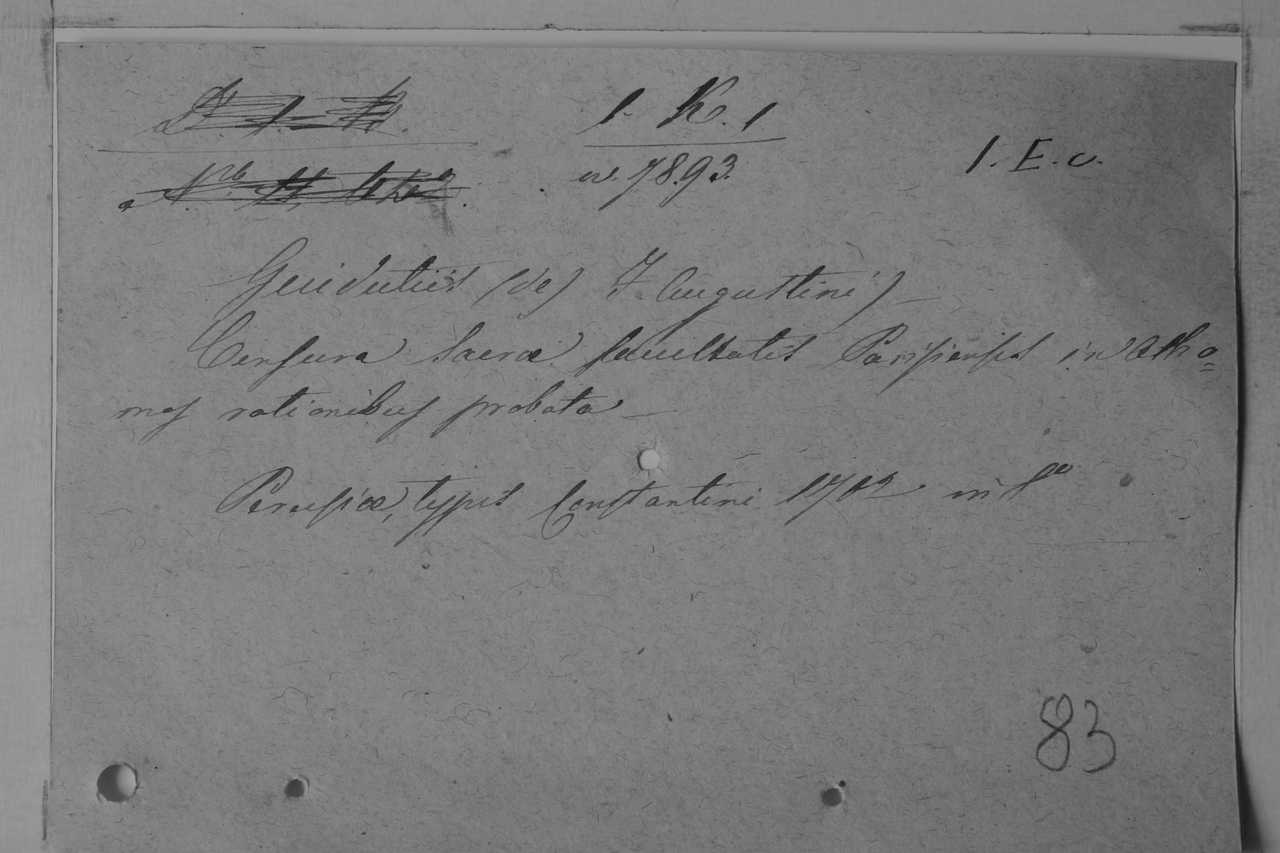 1. K. 1
1. E. c.
78.93.
Guidutiis (de) J. Augustini)
Censura Sacræ facultatis Parisiensis in Atho=
mos rationibus probata
Perusiæ, typis Constantini 1712 in 8º
83